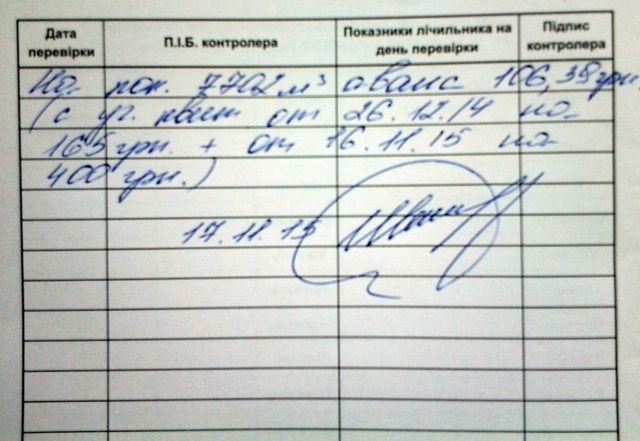 Дата перевірки
П.І.Б. контролера
Показники лічильника на день перевірки
Підпис контролера
На пок. 7702 м³ аванс 106,38 грн.
(с уч. квит от 26.12.14 на
165 грн. + от 16.11.15 на
400 грн.)
17.11.15